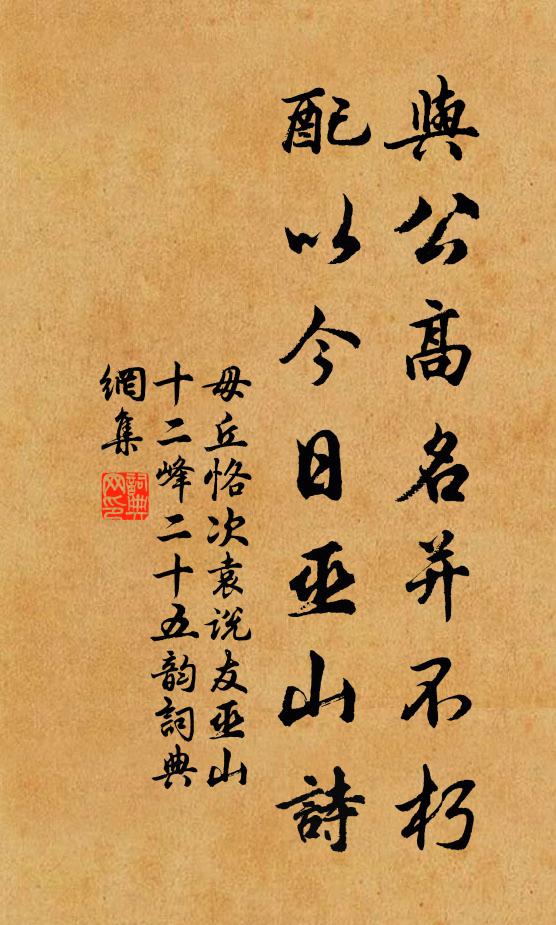 與公高名并不朽
配以今日巫山詩
毋丘恪次袁说友巫山
十二峰二十五韵詞典
網集
詞典网印